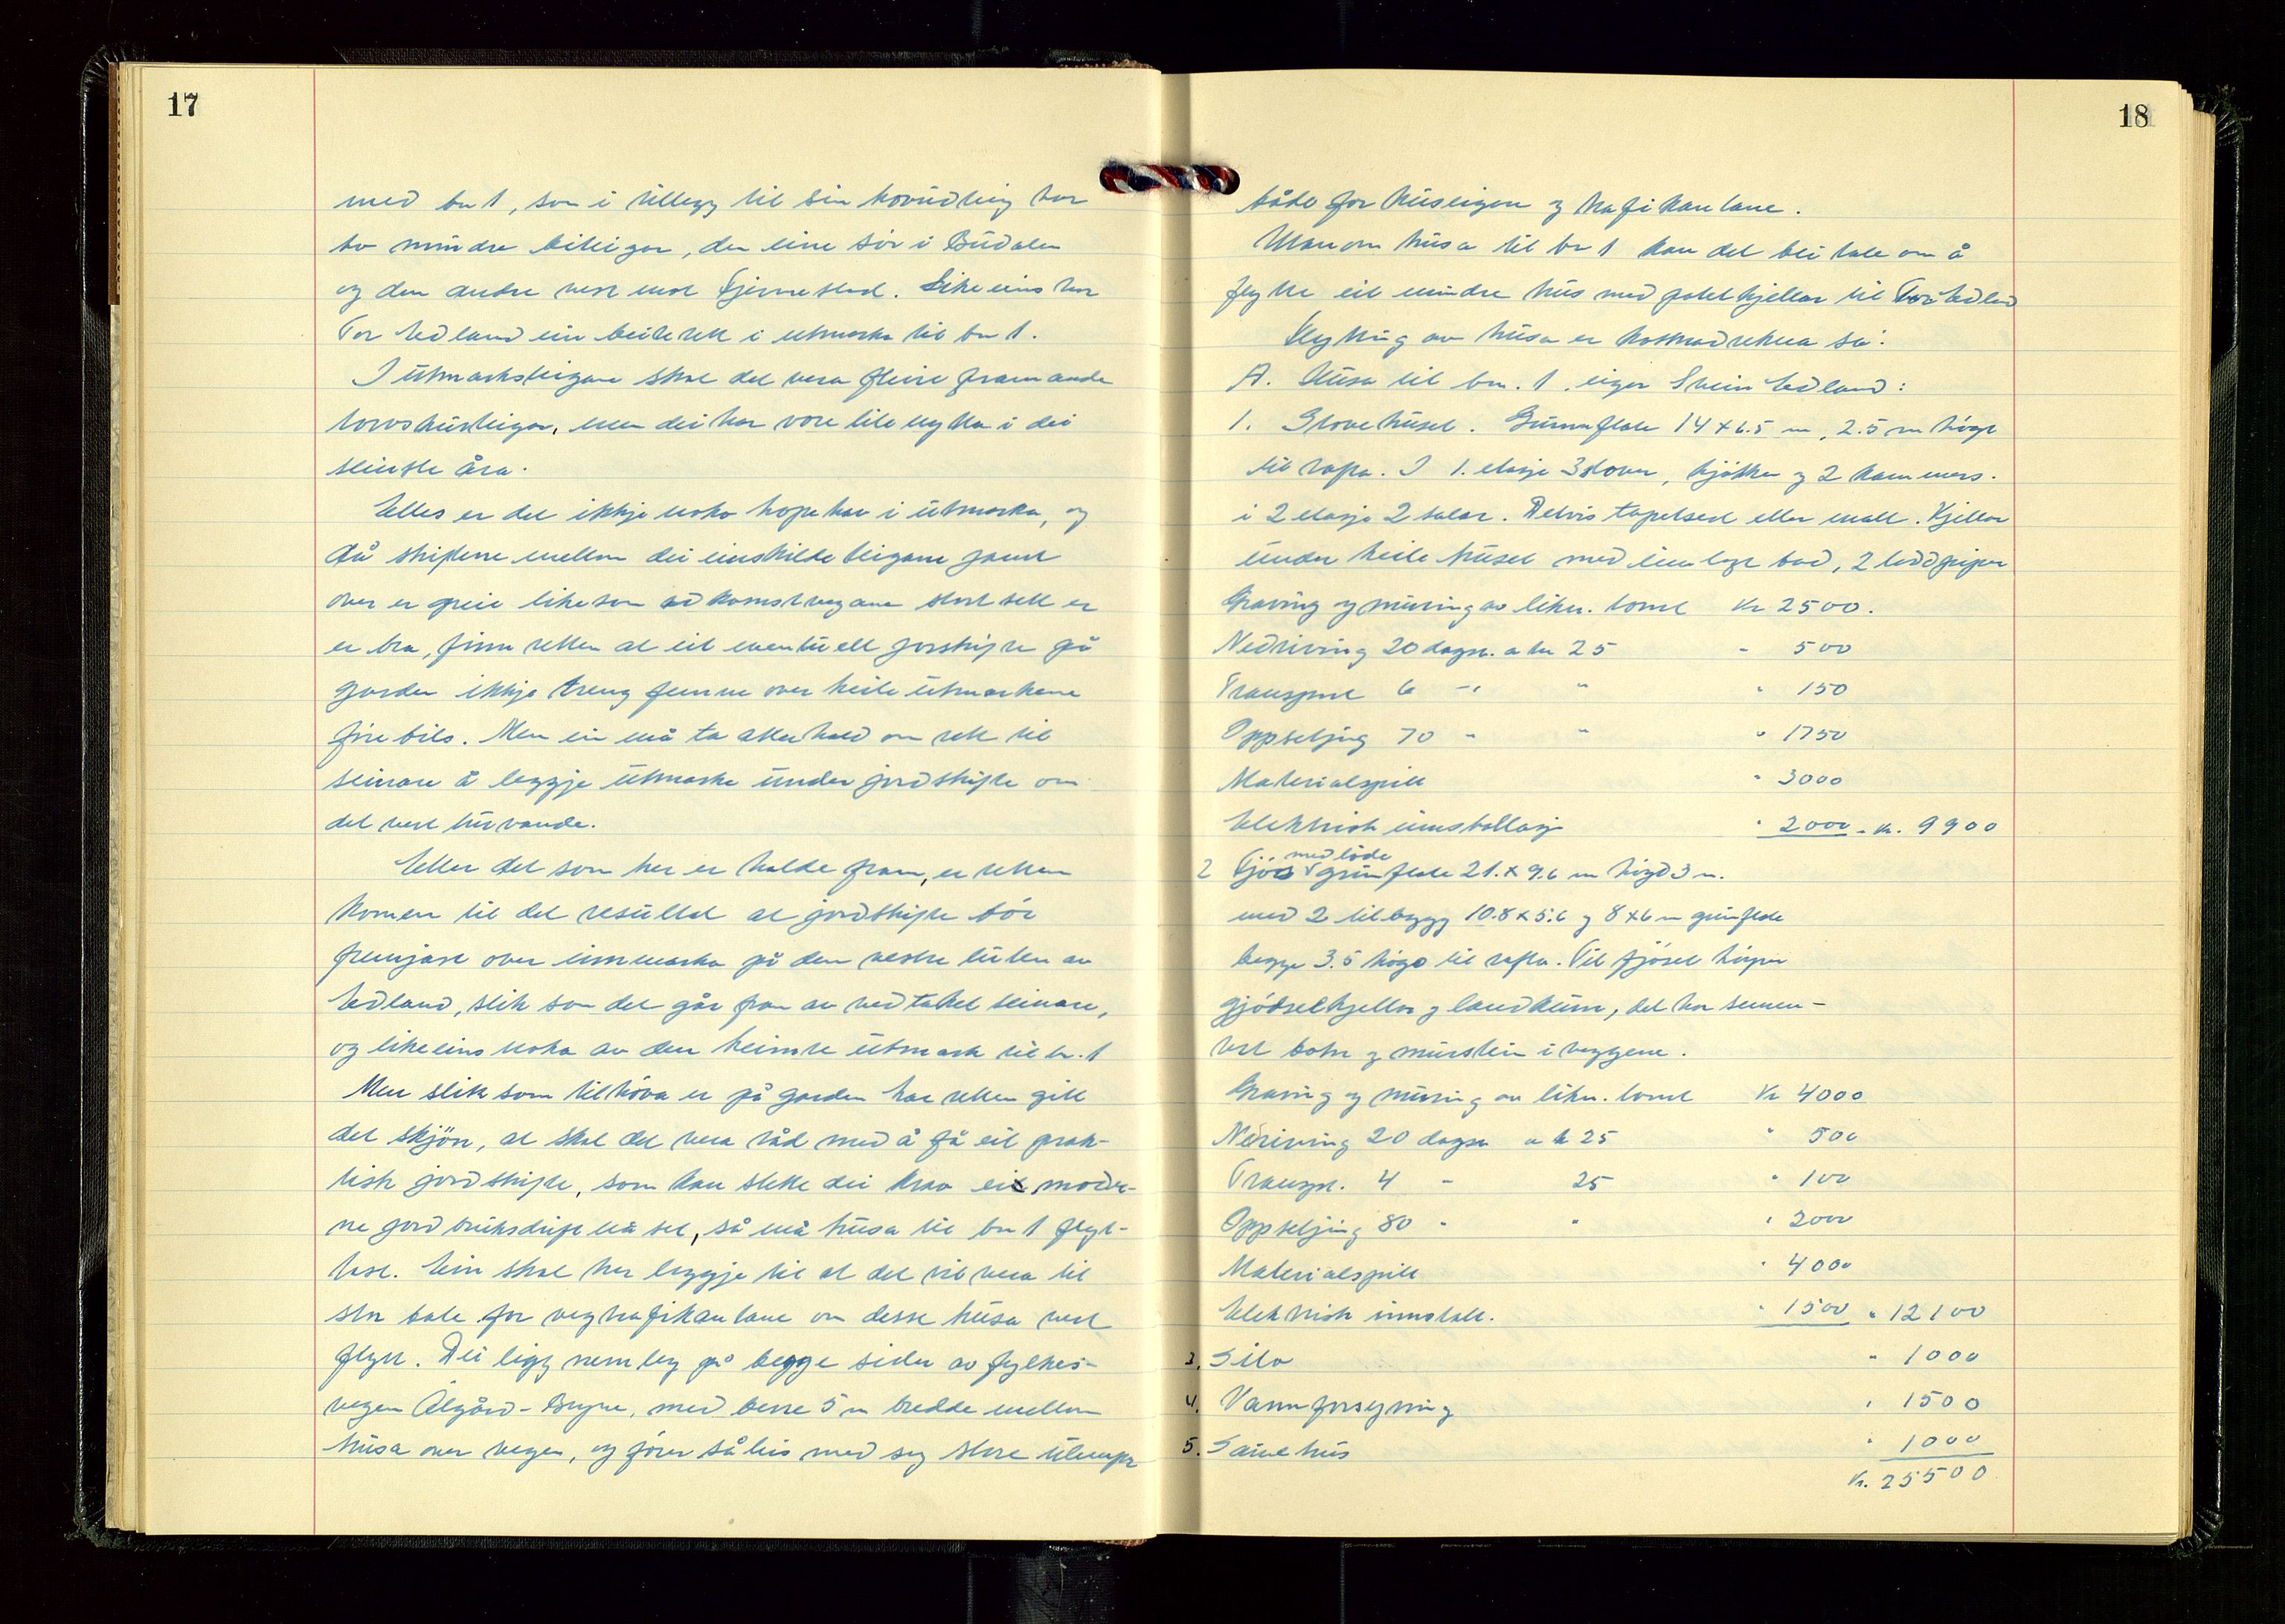 17
med bn 1, som i tillegg til sin hovudteig har
to mindre beiteigar, den eine sør i Büdalen
og den andre vest mot Fjermestad. Likeeins har
Tor Edland ein beiterett i utmarka til bn 1.
I utmarksteigane skal det vera fleire framande
torvskurteigar, men dei har vore lite nytta i dei
seinste åra.
Elles er det ikkje noko hopehav i utmarka, og
då skiftene mellom dei einskilde teigane jamt
over er greie likesom adkomstvegane stort sett er
er bra, finn retten at eit eventuell jorskifte på
garden ikkje treng femne over heile utmarkene
fire bils. Men ein må ta atterhald om rett til
seinare å leggje utmarka under jordskifte om
det vert turvande.
Etter det som her er halde fram, er retten
komen til det resultat at jordskifte bör
fremjast over innmarka på den vestre luten av
Edland, slik som det går fram av vedtaket seinare,
og likeeins noko av den heimste utmark til bn. 1
Men slik som tilhöva er på garden har retten gitt
det skjön, at skal det vera råd med å få eit prak-
tisk jordskifte, som kan stette dei krav ei moder-
ne jordbruksdrift nå set, så må husa til bn 1 flyt-
tast. Ein skal her leggje til at det vil vera til
stor bate for vegtrafikantane om desse husa vert
flytt. Dei ligg nemleg på begge sider av fylkes-
vegen Ålgård - Bryne, med berre 5 m bredde mellom
husa over vegen, og fører såleis med seg store ulemper
18
både for huseigar og trafikantane.
Utanom husa til bn 1 kan det bli tale om å
flytte eit mindre hus med potetkjellar til Tor Edland
Flytting av husa er kostnadrekna så:
A. Husa til bn. 1. eigar Svein Edland:
1. Stovehuset. Grunnflate 14 x 6.5 m, 2.5 m högt
til rafta. I 1. etasje 3 stover, kjökken og 2 kammers.
i 2 etasje 2 salar. Delvis tapetsert eller malt. Kjellar
under heile huset med innlagt bad, 2 teddpiper
Graving og muring av likn. tomt Kr 2500.
Nedriving 20 dagsv. a kr 25 " 500
Transport 6 -" " " 150
Oppsetjing 70 " " " 1750
Materialspill " 3000
Elektrisk innstallasj " 2000 - kr. 9900
med löde
2 Fjös grunflate 21. x 9.6 m høgd 3 m.
med 2 tilbygg 10.8 x 5.6 og 8 x 6 m grunflate
begge 3.5 høge til rafta. Til fjöset höyrer
gjödselkjellar og landkum, det har semen-
tert botn og murstein i veggene.
Graving og muring av likn. tomt Kr 4000
Neriving 20 dagsv a k 25 " 500
Transp. 4 " 25 " 100
Oppsetjing 80 " " " 2000
Materialspill " 4000
Elektrisk innstall. " 1500 " 12100
3. Silo " 1000
4. Vannforsyning " 1500
5. Sauehus " 1000
Kr. 25500